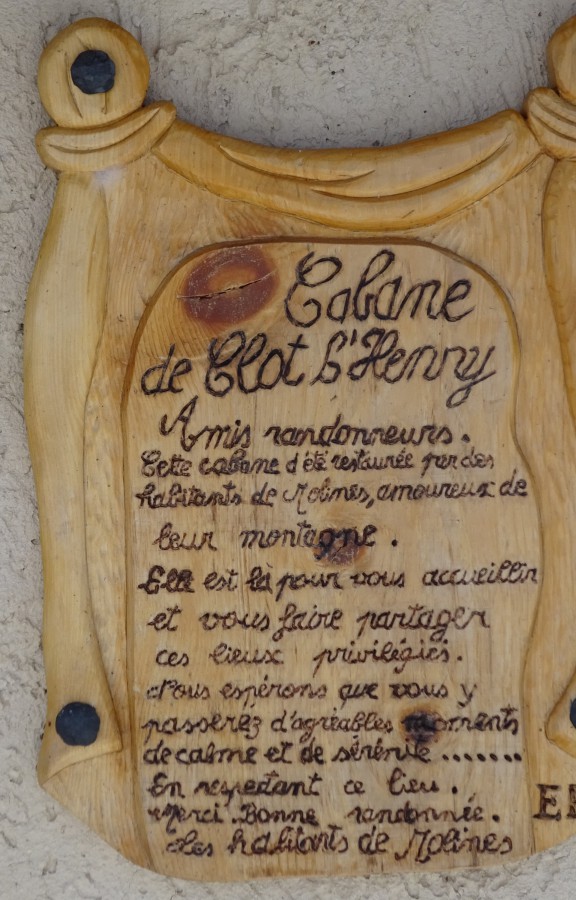 Cabane
de Clot L'Henry
Amis randonneurs.
Cette cabane d'été restaurée par des
habitants de Molines, amoureux de
leur montagne.
Elle est là pour vous accueillir
et vous faire partager
ces lieux privilégiés.
Nous espérons que vous y
passerez d'agréables moments
de calme et de sérénité .......
En respectant ce lieu.
Merci. Bonne randonnée.
Les habitants de Molines